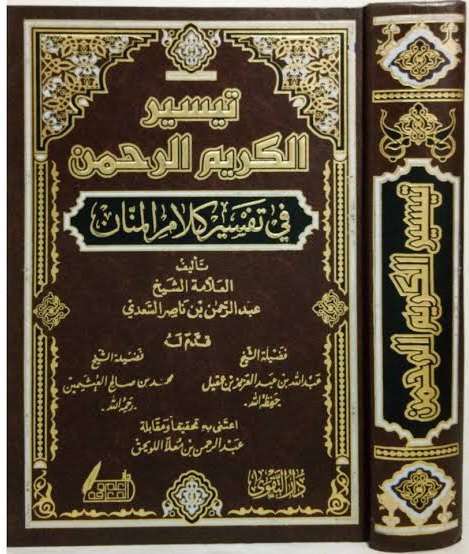 تيسير
الكريم الرحمن
في تفسير كلام المنان
تأليف
العلامة الشيخ
عبد الرحمن بن ناصر السعدي
قدم له
فضيلة الشيخ
عبد الله بن عبد العزيز بن عقيل
حفظه الله.
فضيلة الشيخ
محمد بن صالح العثيمين
رحمه الله.
اعتنى به تحقيقا ومقابلة
عبد الرحمن بن معلا اللويحق
دار التقوى
تيسير الكريم الرحمن